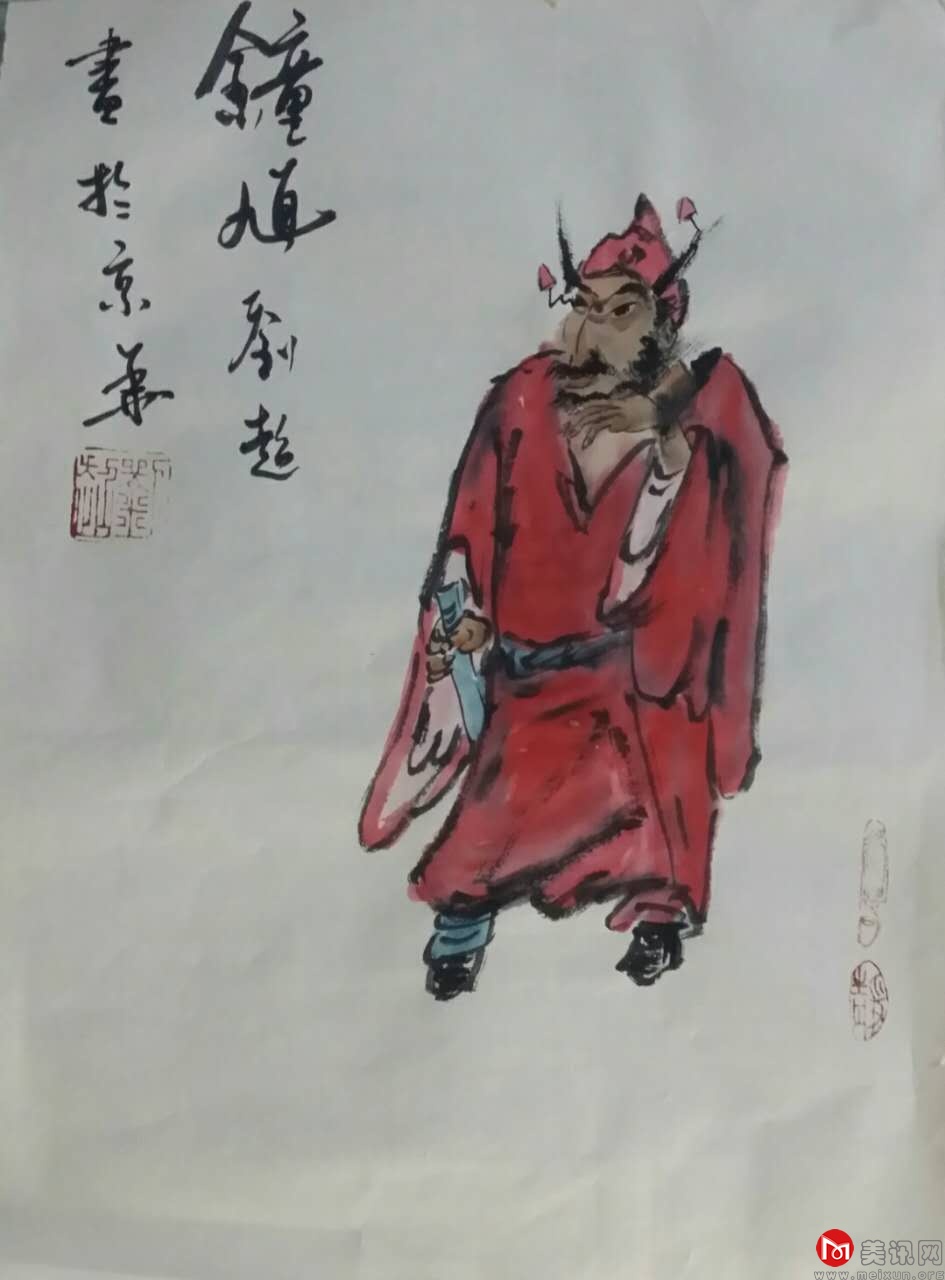 鐘馗 劉超
畫於京華
美讯网
www.meixun.org